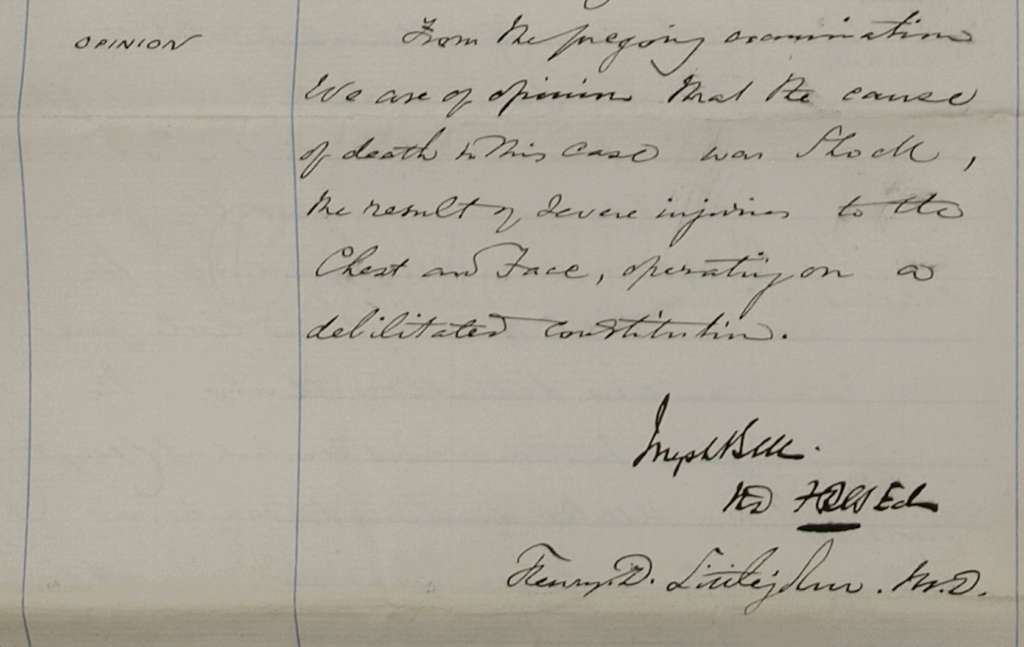 OPINION
From the foregoing examination
We are of opinion that the cause
of death in this case was Shock,
the result of severe injuries to the
Chest and Face, operating on a
debilitated constitution.
Joseph Bell.
MD FRCS Ed
Henry. D. Littlejohn. M.D.